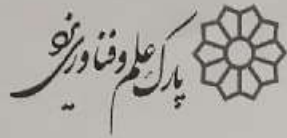 پارک علم و فناوری یزد